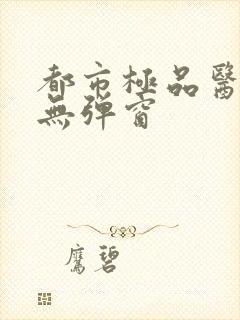 都市極品醫
無彈窗
鷹碧